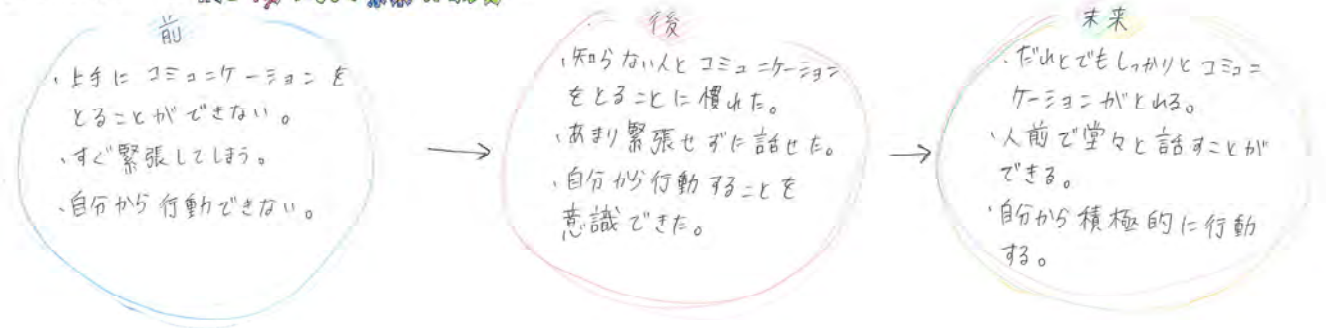 前
・上手にコミュニケーションを
とることができない。
・すぐ緊張してしまう。
・自分から行動できない。
→
後
・知らない人とコミュニケーション
をとることに慣れた。
・あまり緊張せずに話せた。
・自分から行動することを
意識できた。
→
未来
・だれとでもしっかりとコミュニ
ケーションがとれる。
・人前で堂々と話すことが
できる。
・自分から積極的に行動
する。